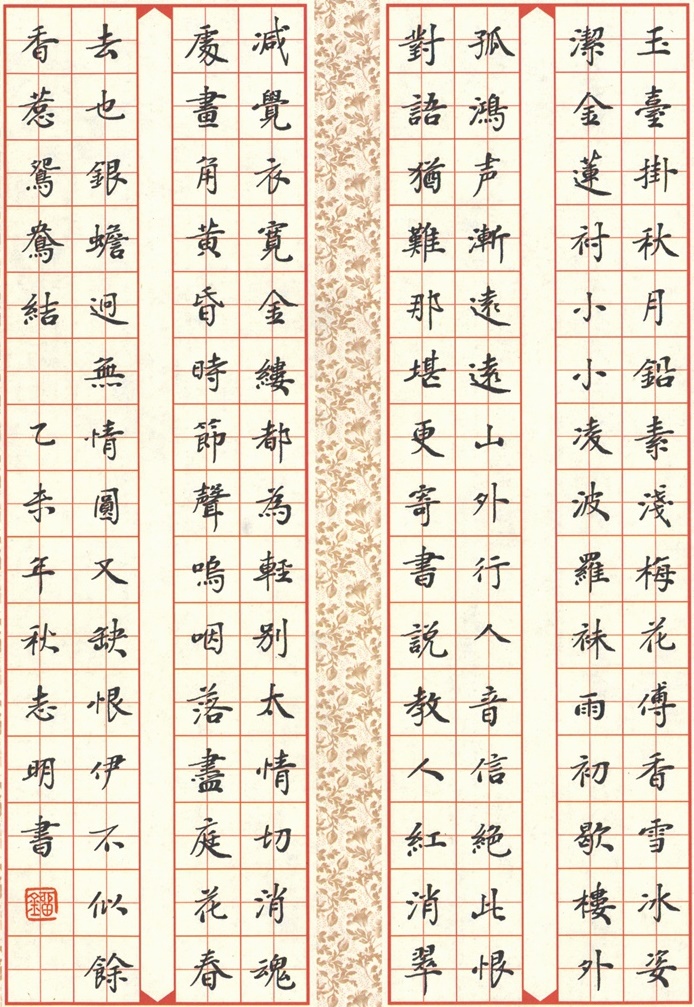 玉臺掛秋月鉛素淺梅花傅香雪冰姿
潔金蓮衬小小凌波羅袜雨初歇樓外
孤鴻声漸遠遠山外行人音信絕此恨
對語猶難那堪更寄書説教人紅消翠
減覺衣寬金縷都為輕别太情切消魂
處畫角黄昏時節聲嗚咽落盡庭花春
去也銀蟾迥無情圓又缺恨伊不似餘
香惹鴛鴦結 乙未年秋志明書